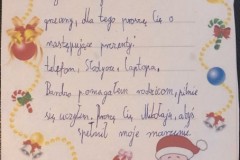 grzeczny, dla tego proszę Cię o
następujące prezenty:
telefon, słodycze, Laptopa.
Bardzo pomagałem rodzicom, pilnie
się uczyłem. Proszę Cię Mikołaju, abyś
spełnił moje marzenie.